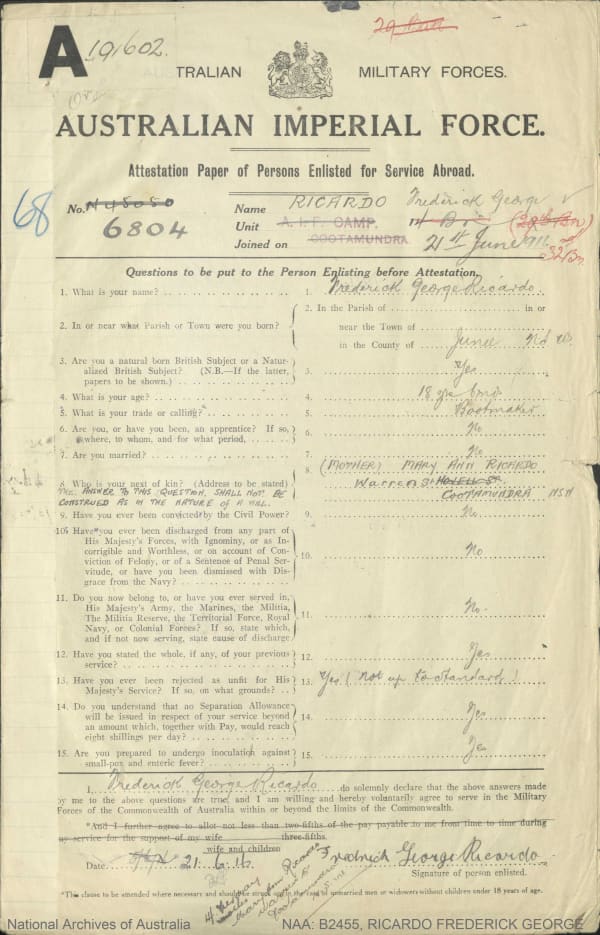 A 191602.
29 Bn
TRALIAN MILITARY FORCES.
AUSTRALIAN IMPERIAL FORCE.
Attestation Paper of Persons Enlisted for Service Abroad.
68
No. N45050
6804
Name RICARDO Frederick George
Unit A.I.F. CAMP. (29th Bn)
Joined on COOTAMUNDRA 21st June 1916
32 Bn
Questions to be put to the Person Enlisting before Attestation.
1. What is your name? 1. Frederick George Ricardo
2. In or near what Parish or Town were you born? 2. In the Parish of in or
near the Town of
in the County of Junee N.S.W.
3. Are you a natural born British Subject or a Natur-
alized British Subject? (N.B.—If the latter,
papers to be shown.) 3. Yes
4. What is your age? 4. 18 yrs 6 mos
5. What is your trade or calling? 5. Bootmaker
6. Are you, or have you been, an apprentice? If so,
where, to whom, and for what period, 6. No
7. Are you married? 7. No
8. Who is your next of kin? (Address to be stated) 8. (MOTHER) MARY ANN RICARDO
Warren St HOVELL ST.
COOTAMUNDRA NSW
THE ANSWER TO THIS QUESTION, SHALL NOT BE
CONSTRUED AS IN THE NATURE OF A WILL.
9. Have you ever been convicted by the Civil Power? 9. No
10. Have you ever been discharged from any part of
His Majesty's Forces, with Ignominy, or as In-
corrigible and Worthless, or on account of Con-
viction of Felony, or of a Sentence of Penal Ser-
vitude, or have you been dismissed with Dis-
grace from the Navy? 10. No
11. Do you now belong to, or have you ever served in,
His Majesty's Army, the Marines, the Militia,
The Militia Reserve, the Territorial Force, Royal
Navy, or Colonial Forces? If so, state which,
and if not now serving, state cause of discharge 11. No
12. Have you stated the whole, if any, of your previous
service? 12. Yes
13. Have you ever been rejected as unfit for His
Majesty's Service? If so, on what grounds? 13. Yes (Not up to Standard)
14. Do you understand that no Separation Allowance
will be issued in respect of your service beyond
an amount which, together with Pay, would reach
eight shillings per day? 14. Yes
15. Are you prepared to undergo inoculation against
small-pox and enteric fever? 15. Yes
I, Frederick George Ricardo do solemnly declare that the above answers made
by me to the above questions are true, and I am willing and hereby voluntarily agree to serve in the Military
Forces of the Commonwealth of Australia within or beyond the limits of the Commonwealth.
*And I further agree to allot not less than two-fifths of the pay payable to me from time to time during
my service for the support of my wife three-fifths.
wife and children
Date 21.6.16 Fredrick George Ricardo
Signature of person enlisted.
Mary Ann Ricardo
Warren St
Cootamundra
*This clause to be amended where necessary and should be struck out in the case of unmarried men or widowers without children under 18 years of age.
National Archives of Australia NAA: B2455, RICARDO FREDERICK GEORGE